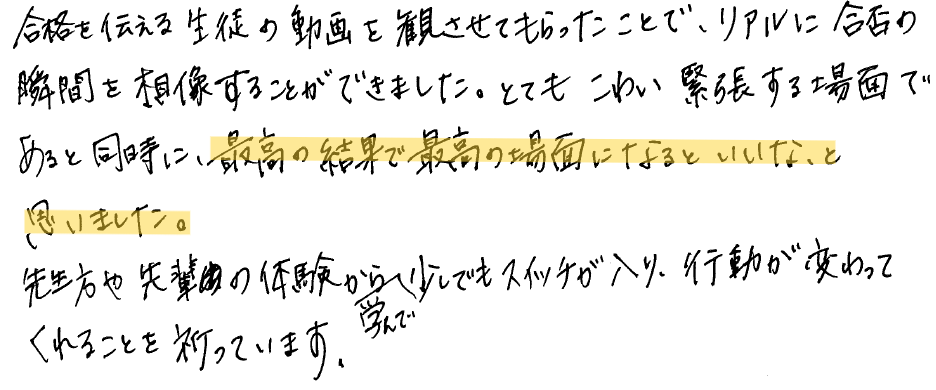 合格を伝える生徒の動画を観させてもらったことで、リアルに合否の
瞬間を想像することができました。とてもこわい緊張する場面で
あると同時に、最高の結果で最高の場面になるといいな、と
思いました。
先生方や先輩の体験から学んで少しでもスイッチが入り、行動が変わって
くれることを祈っています。